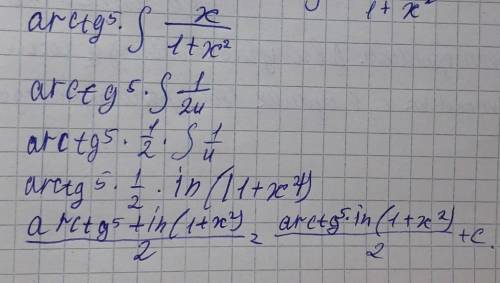 ∫ 1+x²
arctg⁵· ∫ x/(1+x²)
arctg⁵· ∫ 1/(2u)
arctg⁵· 1/2 · ∫ 1/u
arctg⁵· 1/2 · in(|1+x²|)
(arctg⁵+in(1+x²))/2 = (arctg⁵·in(1+x²))/2 +c.